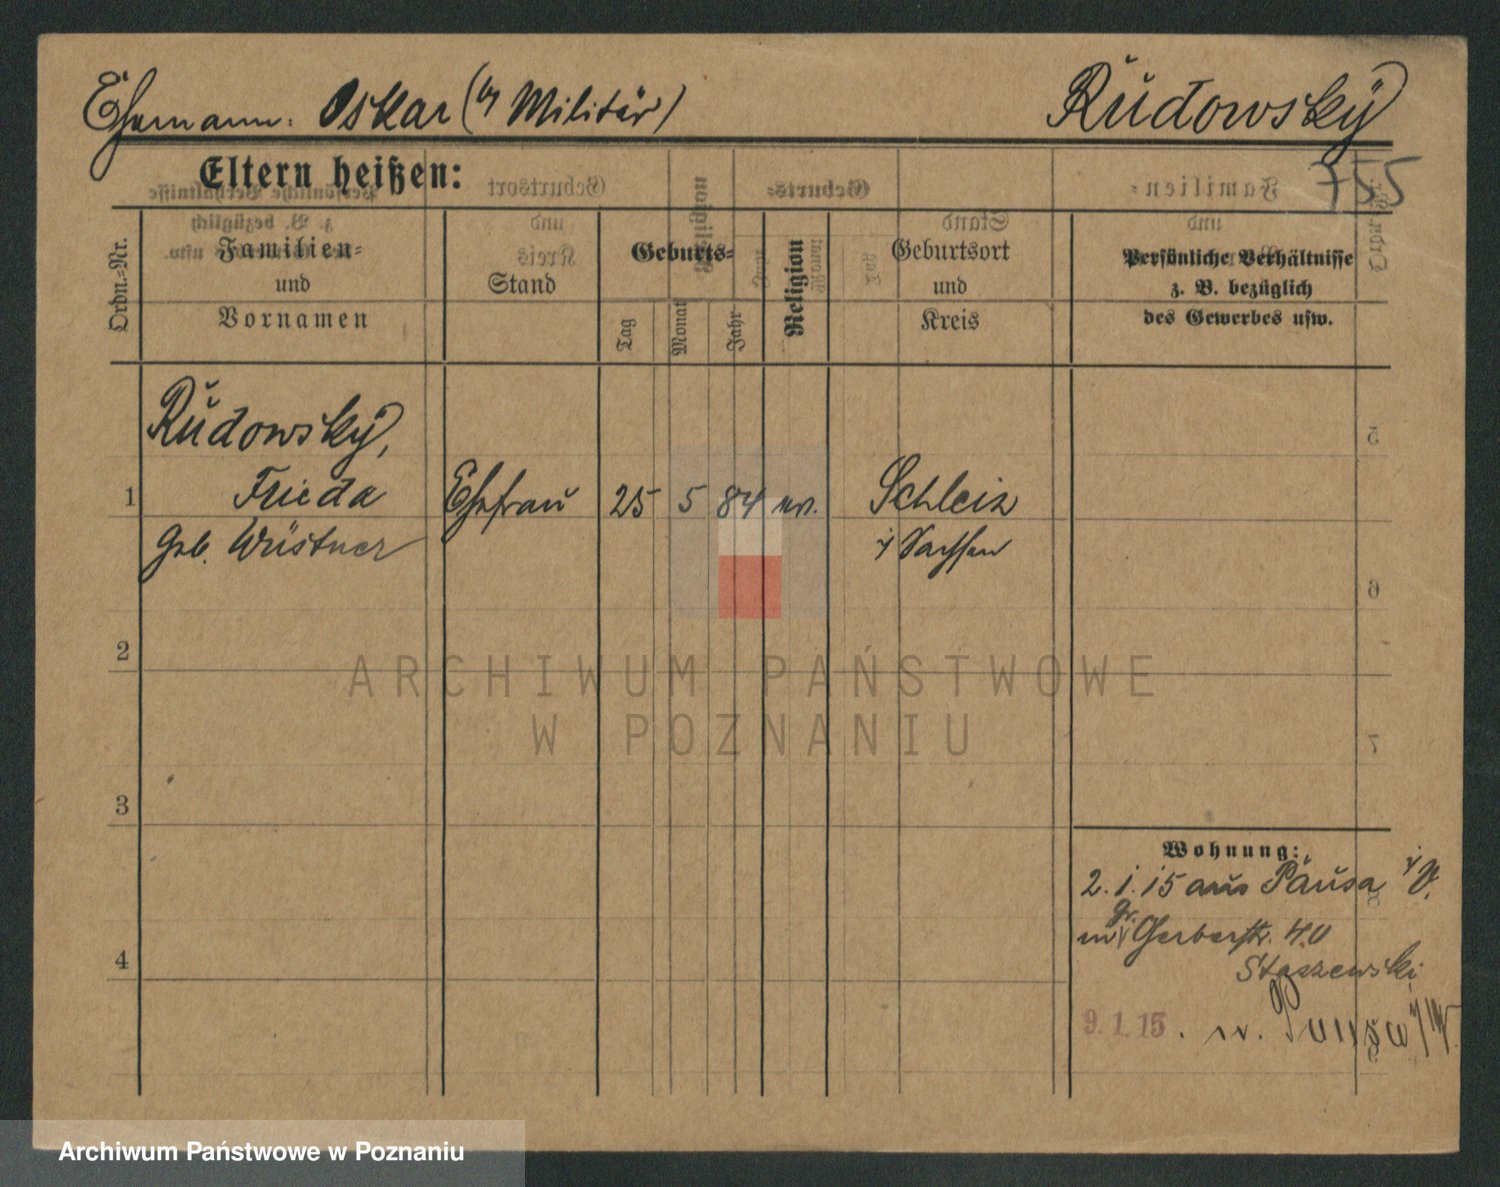 Ehemann: Oskar (b/ Militär)
Rŭdowsky
755
Eltern heißen:
Ordn.=Nr.
Familien=
und
Vornamen
Stand
Geburts=
Tag
Monat
Jahr
Religion
Geburtsort
und
Kreis
Persönliche Verhältnisse
z. B. bezüglich
des Gewerbes usw.
Rŭdowsky,
1 Frieda Ehefraŭ 25 5 84 ev. Schleiz
geb. Wüstner i/ Sachsen
2
3
4
Wohnung:
2. 1. 15 aus Paŭsa i/V.
in gr. Gerberstr. 40
Staszewski
9. 1. 15. n. Pausa i/V.
ARCHIWUM PAŃSTWOWE
W POZNANIU
Archiwum Państwowe w Poznaniu